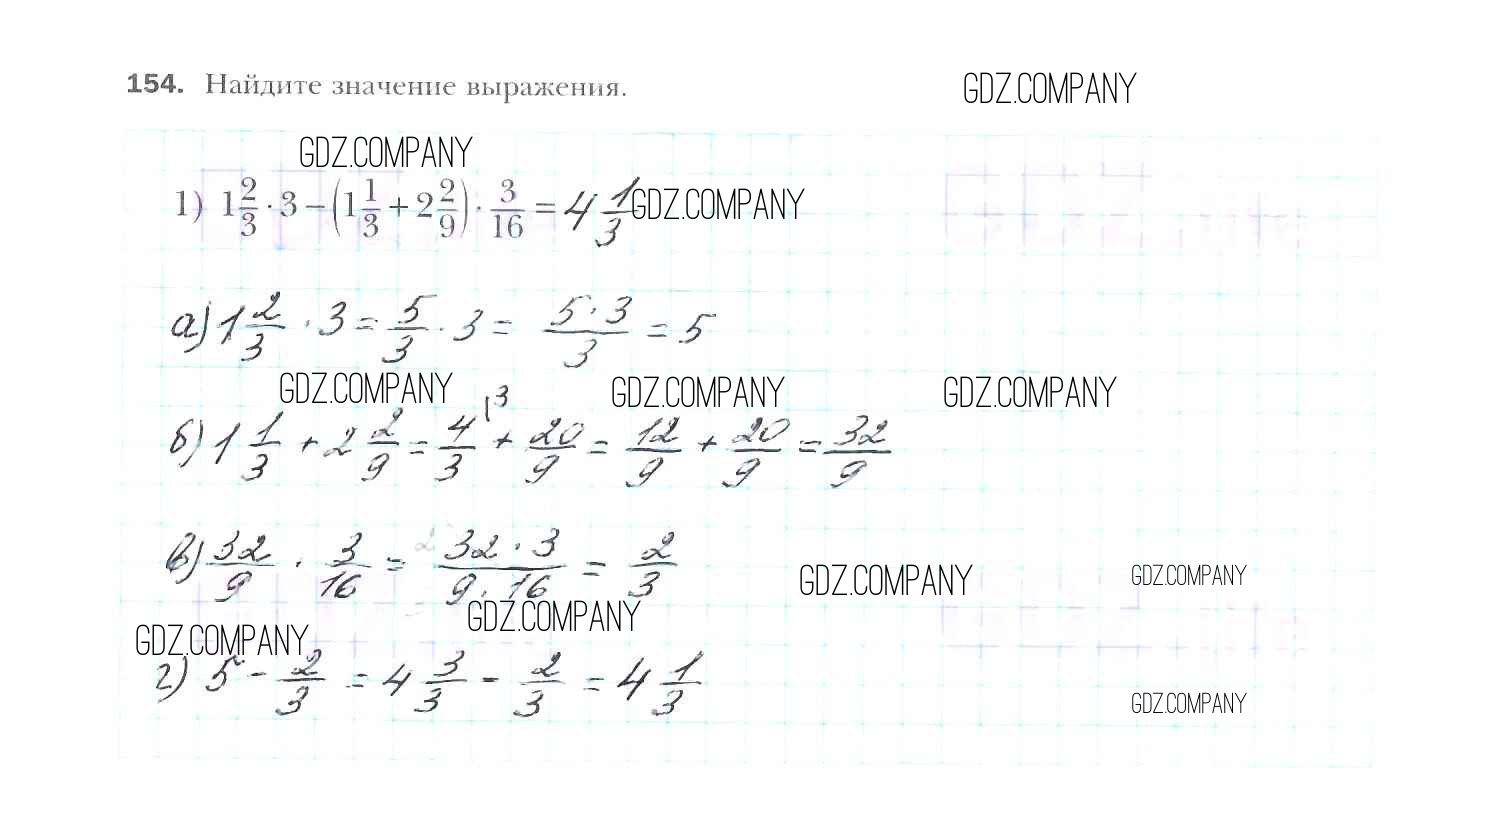 154. Найдите значение выражения.
GDZ.COMPANY
GDZ.COMPANY
1) 1 2/3 · 3 − (1 1/3 + 2 2/9) · 3/16 = 4 1/3
GDZ.COMPANY
а) 1 2/3 · 3 = 5/3 · 3 = 5·3/3 = 5
GDZ.COMPANY GDZ.COMPANY GDZ.COMPANY
б) 1 1/3 + 2 2/9 = 4/3 |3 + 20/9 = 12/9 + 20/9 = 32/9
в) 32/9 · 3/16 = 32·3/9·16 = 2/3
GDZ.COMPANY GDZ.COMPANY
GDZ.COMPANY
GDZ.COMPANY
г) 5 − 2/3 = 4 3/3 − 2/3 = 4 1/3
GDZ.COMPANY